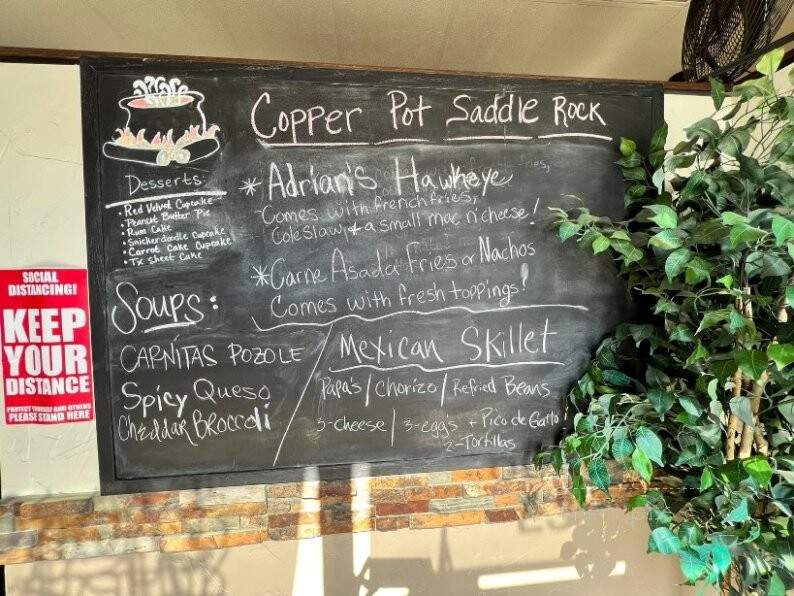 Copper Pot Saddle Rock
Desserts:
• Red Velvet Cupcake
• Peanut Butter Pie
• Rum Cake
• Snickerdoodle Cupcake
• Carrot Cake Cupcake
• Tx Sheet Cake
* Adrian's Hawkeye
Comes with french fries,
Coleslaw, & a small mac n' cheese!
* Carne Asada Fries or Nachos
Comes with fresh toppings!
Soups:
CARNITAS POZOLE
Spicy Queso
Cheddar BROCCOLI
Mexican Skillet
Papa's / Chorizo / Refried Beans
3-cheese / 3-eggs + Pico de Gallo!
2-Tortillas
SOCIAL
DISTANCING!
KEEP
YOUR
DISTANCE
PROTECT YOURSELF AND OTHERS
PLEASE STAND HERE